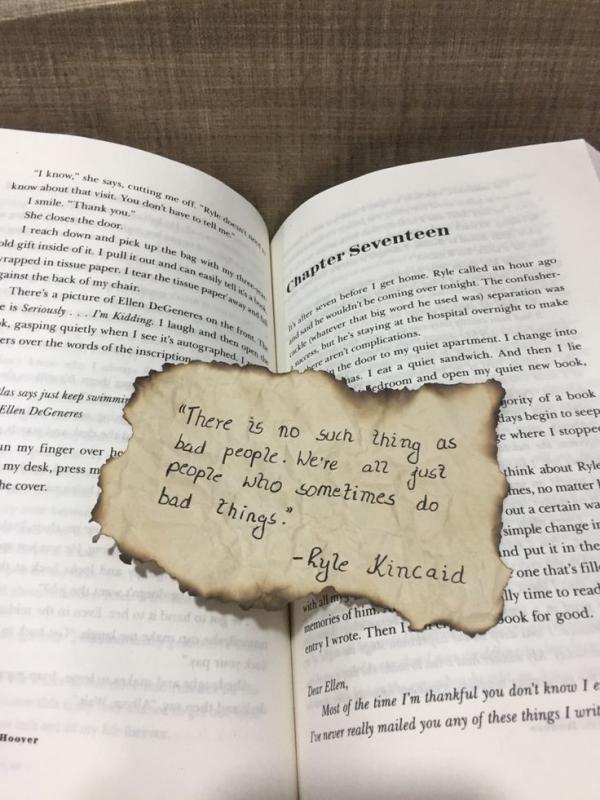 "I know," she says, cutting me off. "Ryle doesn't need to
know about that visit. You don't have to tell me."
I smile. "Thank you."
She closes the door.
I reach down and pick up the bag with my three-year-
old gift inside of it. I pull it out and can easily tell it's a
wrapped in tissue paper. I tear the tissue paper away and
against the back of my chair.
There's a picture of Ellen DeGeneres on the front. The
is Seriously . . . I'm Kidding. I laugh and then open the
gasping quietly when I see it's autographed. I
over the words of the inscription
says just keep swimmin
Ellen DeGeneres
my finger over
my desk, press
the cover.
Hoover
Chapter Seventeen
It's after seven before I get home. Ryle called an hour ago
and said he wouldn't be coming over tonight. The confuser-
cackle (whatever that big word he used was) separation was
success, but he's staying at the hospital overnight to make
there aren't complications.
the door to my quiet apartment. I change into
I eat a quiet sandwich. And then I lie
bedroom and open my quiet new book,
of a book
days begin to seep
where I stopped
think about Ryle
no matter
out a certain
simple change in
and put it in the
one that's
time to read
with all my
memories of him.
entry I wrote. Then I book for good.
Dear Ellen,
Most of the time I'm thankful you don't know I
I've never really mailed you any of these things I
"There is no such thing as
bad people. We're all just
people who sometimes do
bad things."
-Ryle Kincaid